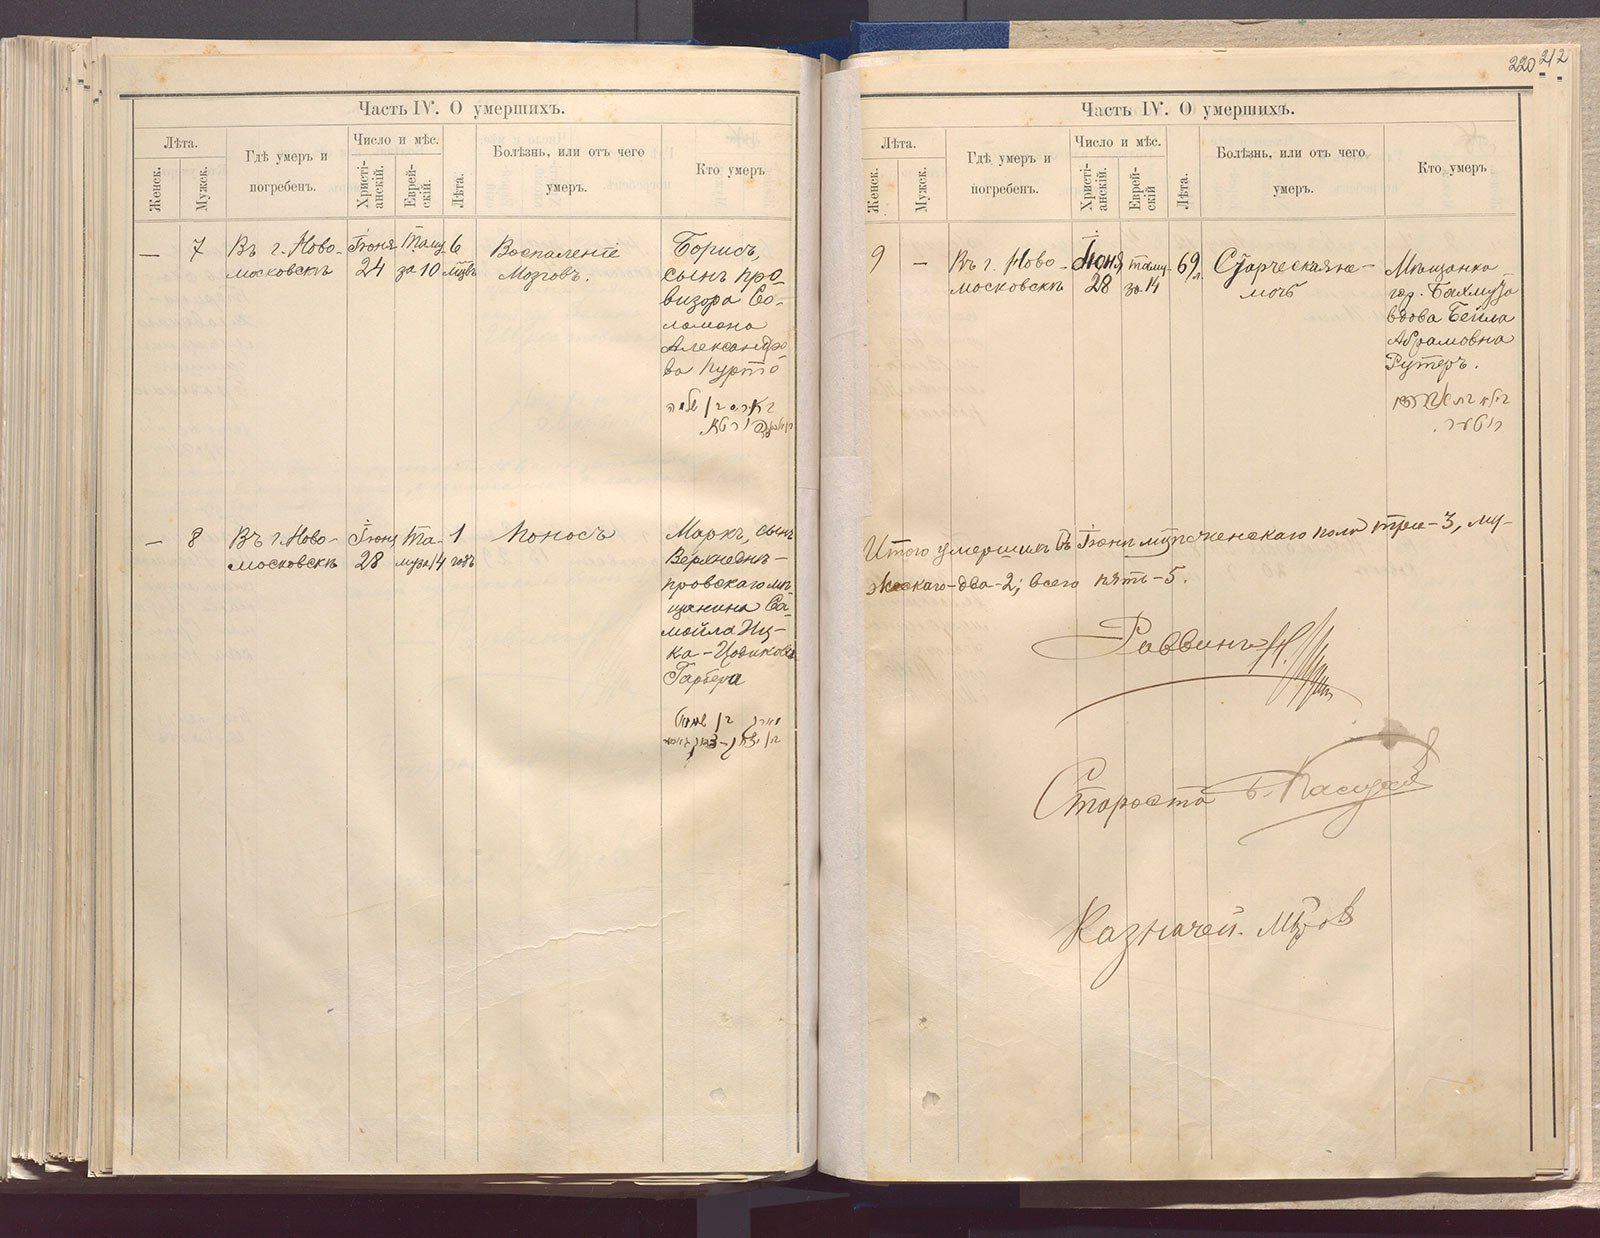 Часть IV. О умершихъ.
Лѣта.
Женск.
Мужск.
Гдѣ умеръ и
погребенъ.
Число и мѣс.
Христі-
анскій.
Еврей-
скій.
Лѣта.
Болѣзнь, или отъ чего
умеръ.
Кто умеръ
—
7
Въ г. Ново-
московскѣ
Іюня
24
Таму-
за 10
6
мѣсвъ
Воспаленіе
Мозговъ.
Борисъ,
сынъ про-
визора Со-
ломона
Александро
ва Курто
—
8
Въ г. Ново-
московскѣ
Іюня
28
Та-
муза 14
1
годъ
Поносъ
Маркъ, сынъ
Верхнеднѣ-
провскаго мѣ-
щанина Са-
мойла Иц-
ка-Цодикова
Гарбера
220 212
Часть IV. О умершихъ.
Лѣта.
Женск.
Мужск.
Гдѣ умеръ и
погребенъ.
Число и мѣс.
Христі-
анскій.
Еврей-
скій
Лѣта.
Болѣзнь, или отъ чего
умеръ.
Кто умеръ
9
—
Въ г. Ново-
московскѣ
Іюня
28
таму-
за 14
69
л.
Старческая не-
мочь
Мѣщанка
гор. Бахмута
вдова Бейла
Абрамовна
Рутеръ.
Итого умершихъ въ Іюнѣ мѣсцѣ женскаго пола три-3, му-
жескаго-два-2; всего пять-5.
Раввинъ
Староста
Казначей.